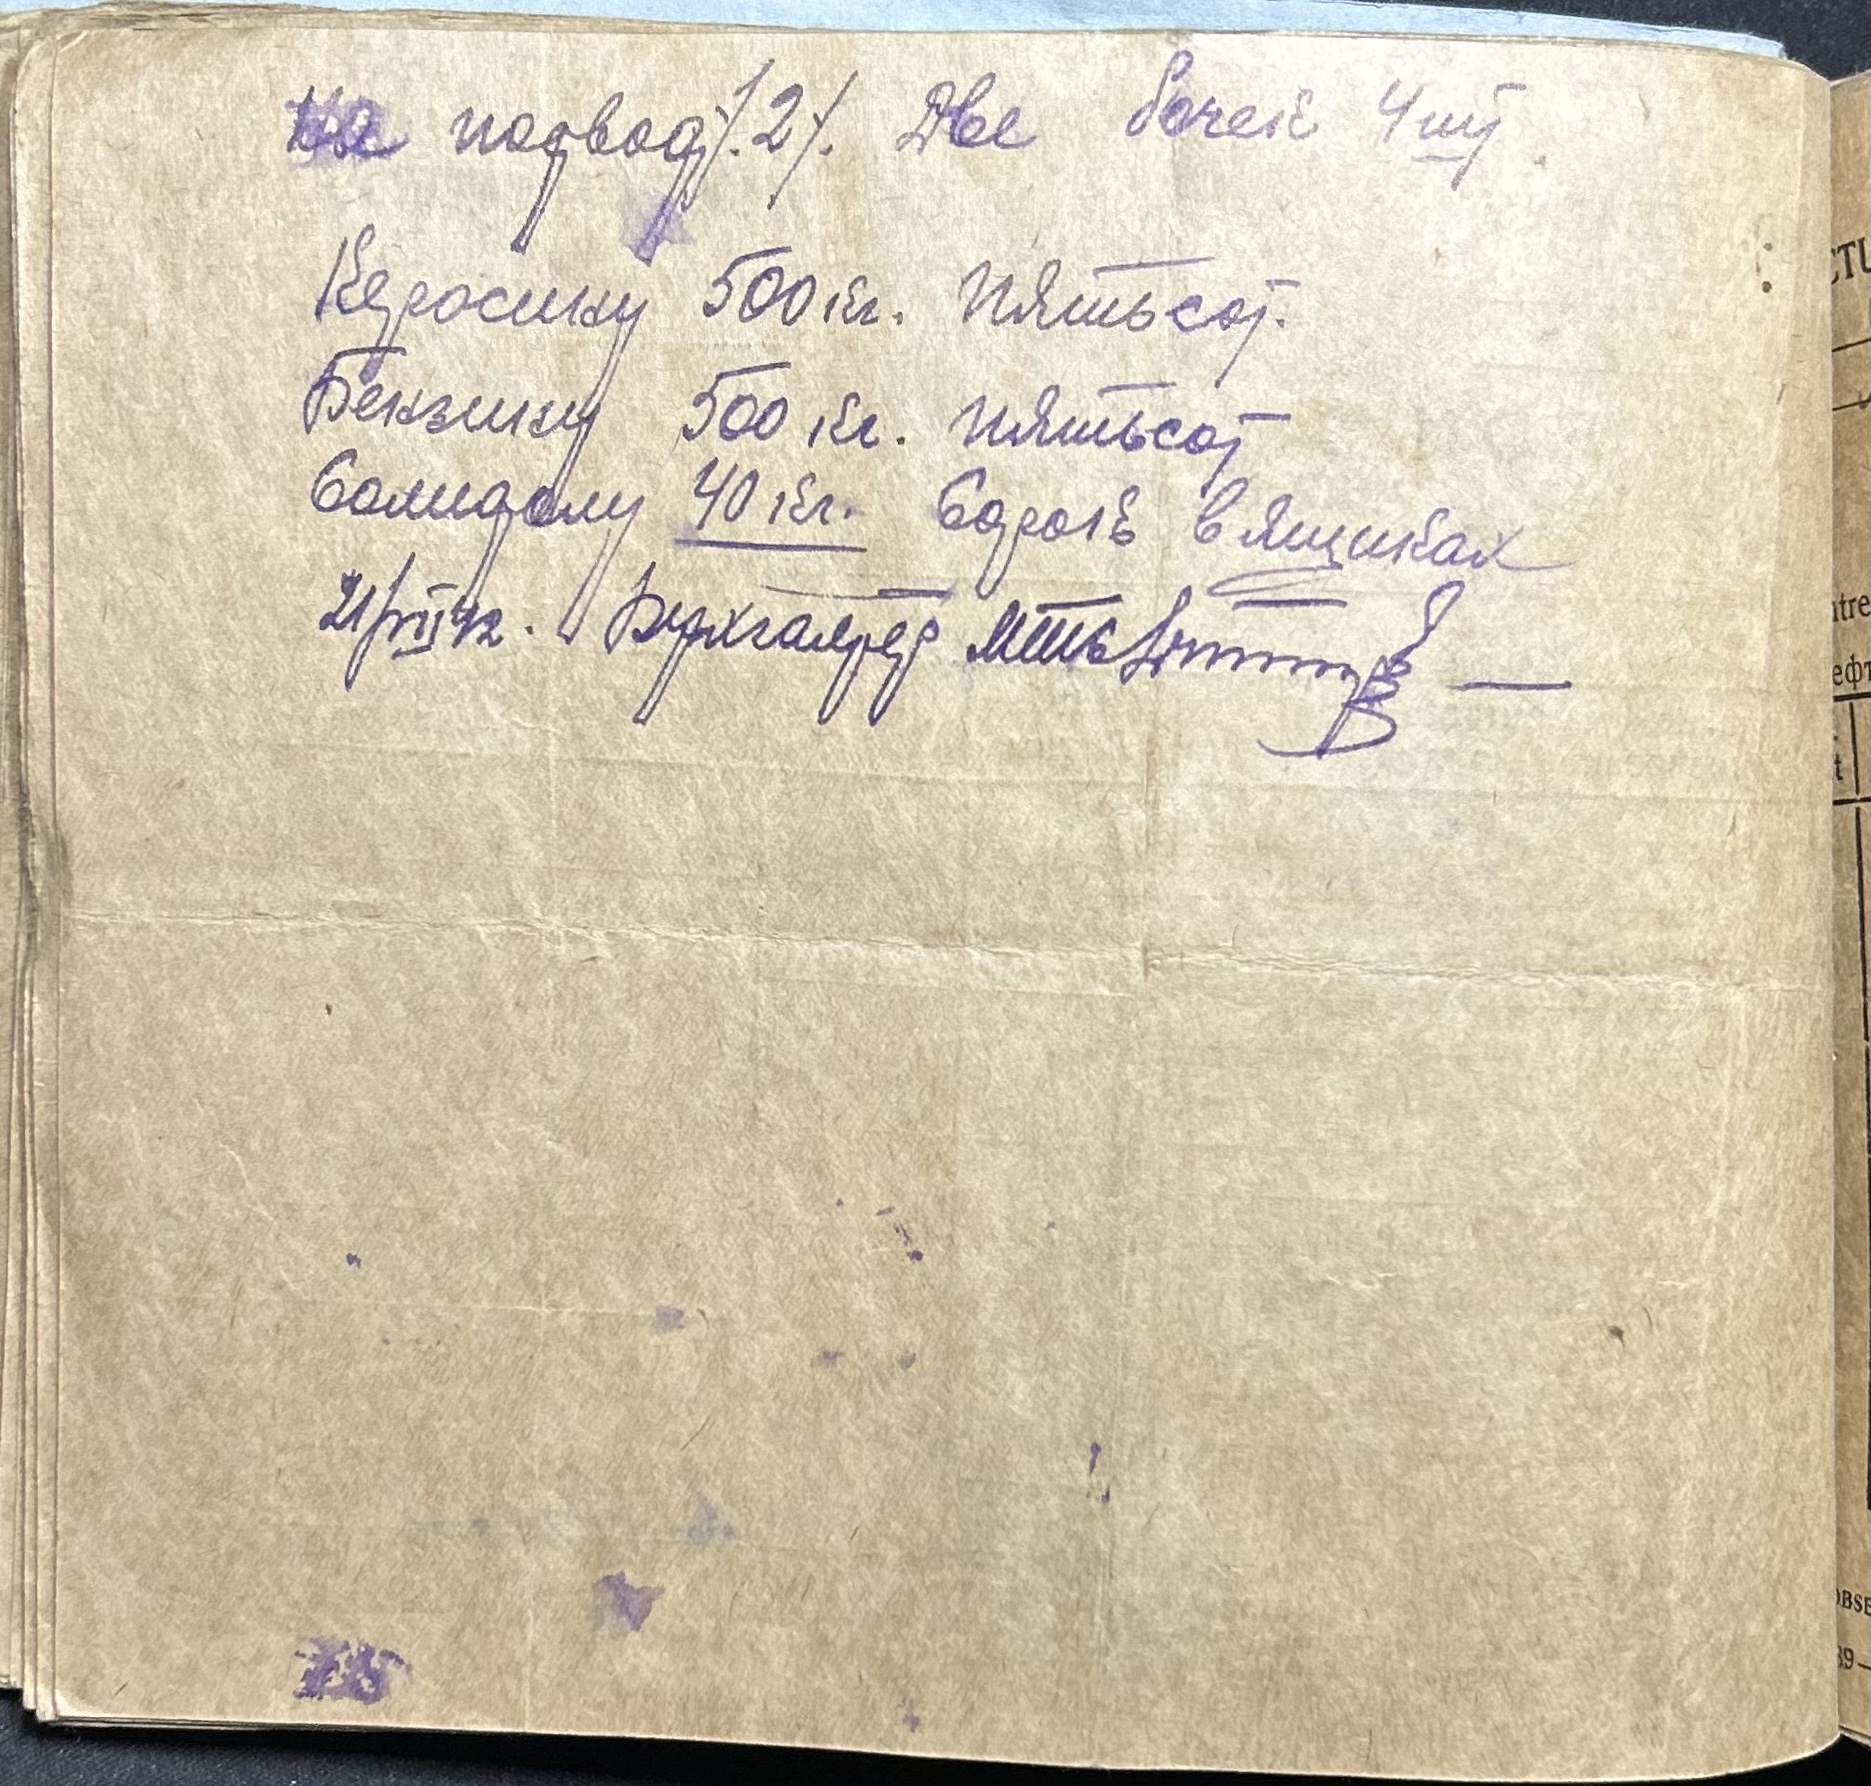 на подвод /.2/. Две бочек 4 шт.
Керосину 500 кг. Пятьсот.
Бензину 500 кг. Пятьсот
Солидолу 40 кг. Сорок в ящиках
21/VII 42. Бухгалтер МТС
сти
ефт
OBSE
39—